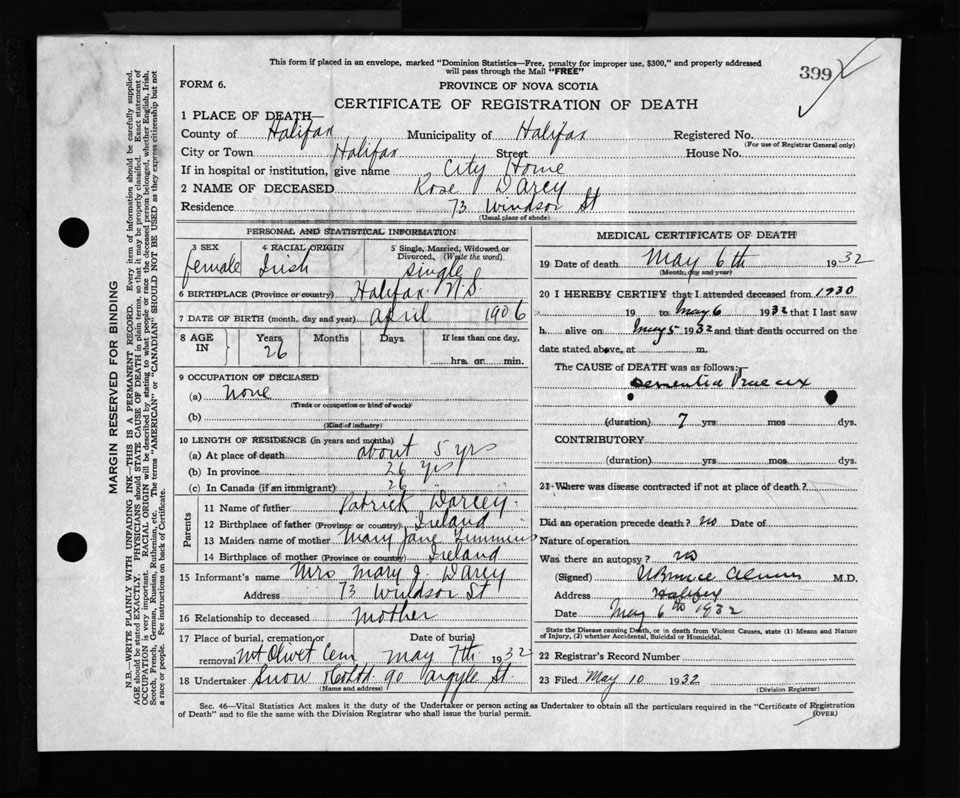 This form if placed in an envelope, marked "Dominion Statistics—Free, penalty for improper use, $300," and properly addressed
will pass through the Mail "FREE"
399
FORM 6.
PROVINCE OF NOVA SCOTIA
CERTIFICATE OF REGISTRATION OF DEATH
1 PLACE OF DEATH—
County of Halifax Municipality of Halifax Registered No.
(For use of Registrar General only)
City or Town Halifax Street House No.
If in hospital or institution, give name City Home
2 NAME OF DECEASED Rose Darcy
Residence 73 Windsor St
(Usual place of abode)
PERSONAL AND STATISTICAL INFORMATION
3 SEX 4 RACIAL ORIGIN 5 Single, Married, Widowed or
Divorced, (Write the word).
female Irish single
6 BIRTHPLACE (Province or country) Halifax N.S.
7 DATE OF BIRTH (month, day and year) april 1906
8 AGE IN Years Months Days If less than one day,
26 hrs. or min.
9 OCCUPATION OF DECEASED
(a) None
(Trade or occupation or kind of work)
(b)
(Kind of industry)
10 LENGTH OF RESIDENCE (in years and months)
(a) At place of death about 5 yrs
(b) In province 26 yrs
(c) In Canada (if an immigrant) 26 "
Parents
11 Name of father Patrick Darcey
12 Birthplace of father (Province or country) Ireland
13 Maiden name of mother Mary Jane Timmins
14 Birthplace of mother (Province or country) Ireland
15 Informant's name Mrs Mary J Darcy
Address 73 Windsor St
16 Relationship to deceased mother
17 Place of burial, cremation or Date of burial
removal Mt Olivet Cem May 7th 1932
18 Undertaker Snow & Co Ltd. 90 Argyle St.
(Name and address)
MEDICAL CERTIFICATE OF DEATH
19 Date of death May 6th 1932
(Month, day and year)
20 I HEREBY CERTIFY that I attended deceased from 1930
19 to May 6 1932 that I last saw
h alive on May 5 1932 and that death occurred on the
date stated above, at m.
The CAUSE of DEATH was as follows:
Dementia Praecox
(duration) 7 yrs mos dys.
CONTRIBUTORY
(duration) yrs mos dys.
21 Where was disease contracted if not at place of death?
Did an operation precede death? no Date of
Nature of operation
Was there an autopsy? no
(Signed) M.D.
Address Halifax
Date May 6th 1932
State the Disease causing Death, or in death from Violent Causes, state (1) Means and Nature
of Injury, (2) whether Accidental, Suicidal or Homicidal.
22 Registrar's Record Number
23 Filed May 10 1932
(Division Registrar)
Sec. 46—Vital Statistics Act makes it the duty of the Undertaker or person acting as Undertaker to obtain all the particulars required in the "Certificate of Registration
of Death" and to file the same with the Division Registrar who shall issue the burial permit.
(OVER)
MARGIN RESERVED FOR BINDING
N.B.—WRITE PLAINLY WITH UNFADING INK—THIS IS A PERMANENT RECORD. Every item of information should be carefully supplied.
AGE should be stated EXACTLY. PHYSICIANS should STATE CAUSE OF DEATH in plain terms, so that it may be properly classified. Exact statement of
OCCUPATION is very important. RACIAL ORIGIN will be described by stating to what people or race the deceased person belonged, whether English, Irish,
Scotch, French, German, Russian, Ruthenian, etc. The terms "AMERICAN" or "CANADIAN" SHOULD NOT BE USED as they express citizenship but not
a race or people. See instructions on back of Certificate.